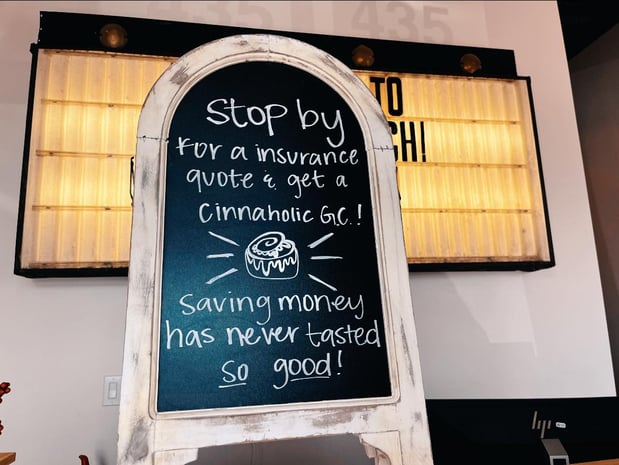 435
435
TO
CH!
Stop by
For a insurance
quote & get a
Cinnaholic G.C.!
saving money
has never tasted
so good!
hp